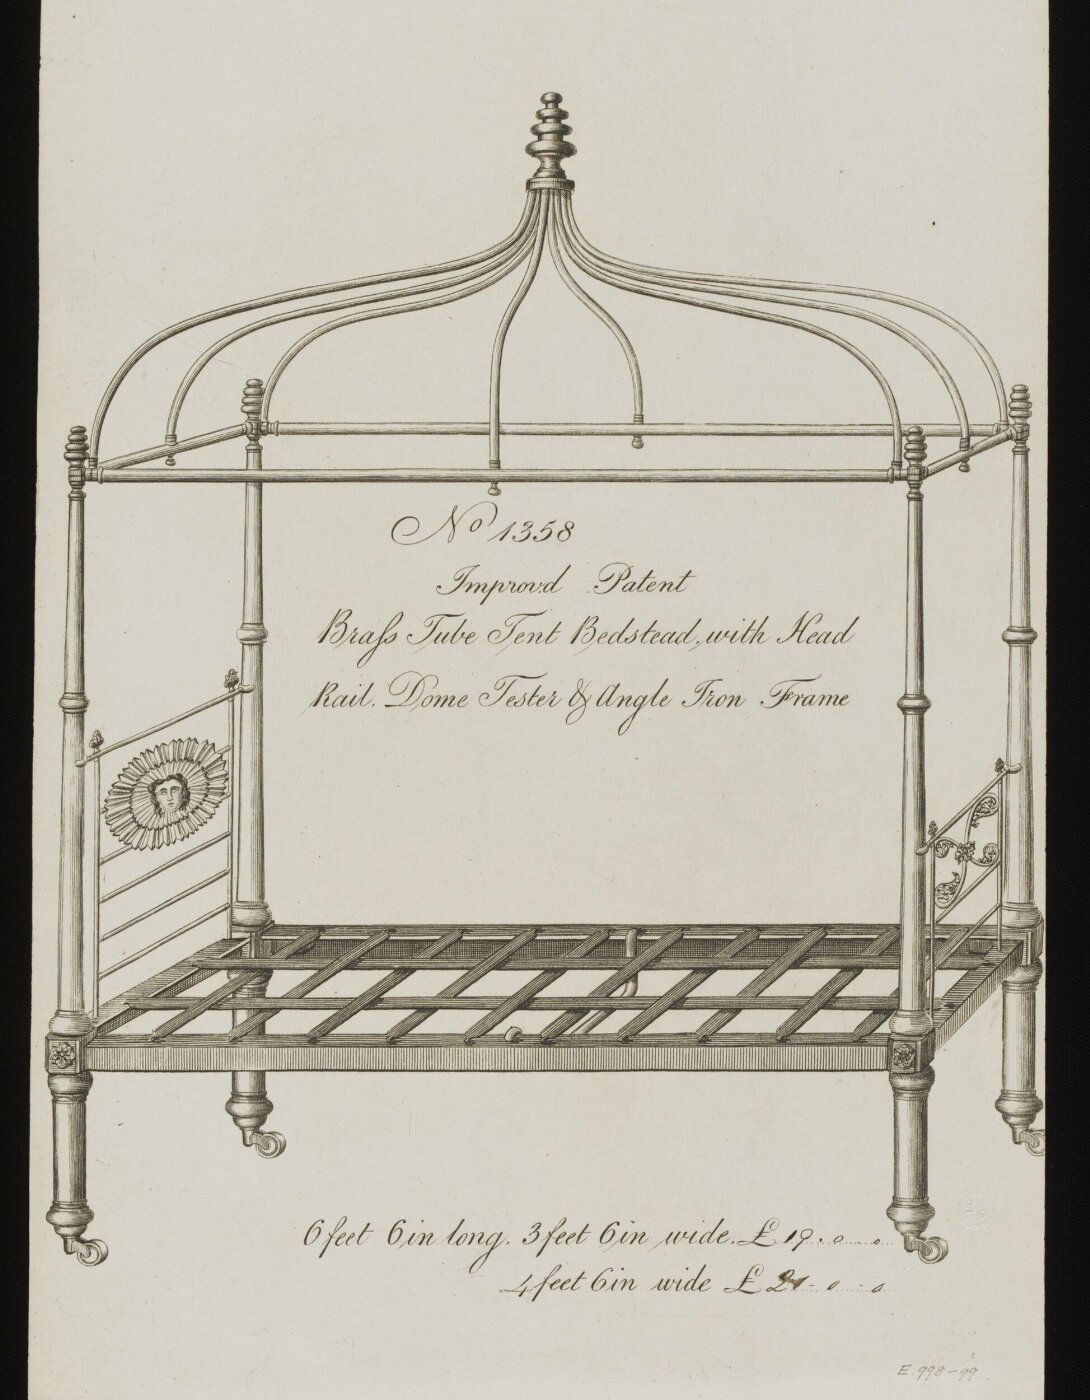 No 1358
Improv.d Patent
Braſs Tube Tent Bedstead, with Head
Rail. Dome Tester & Angle Iron Frame
6 feet 6 in long. 3 feet 6 in wide. £ 19. 0 0
4 feet 6 in wide £ 21 - 0 - 0
E.998-99